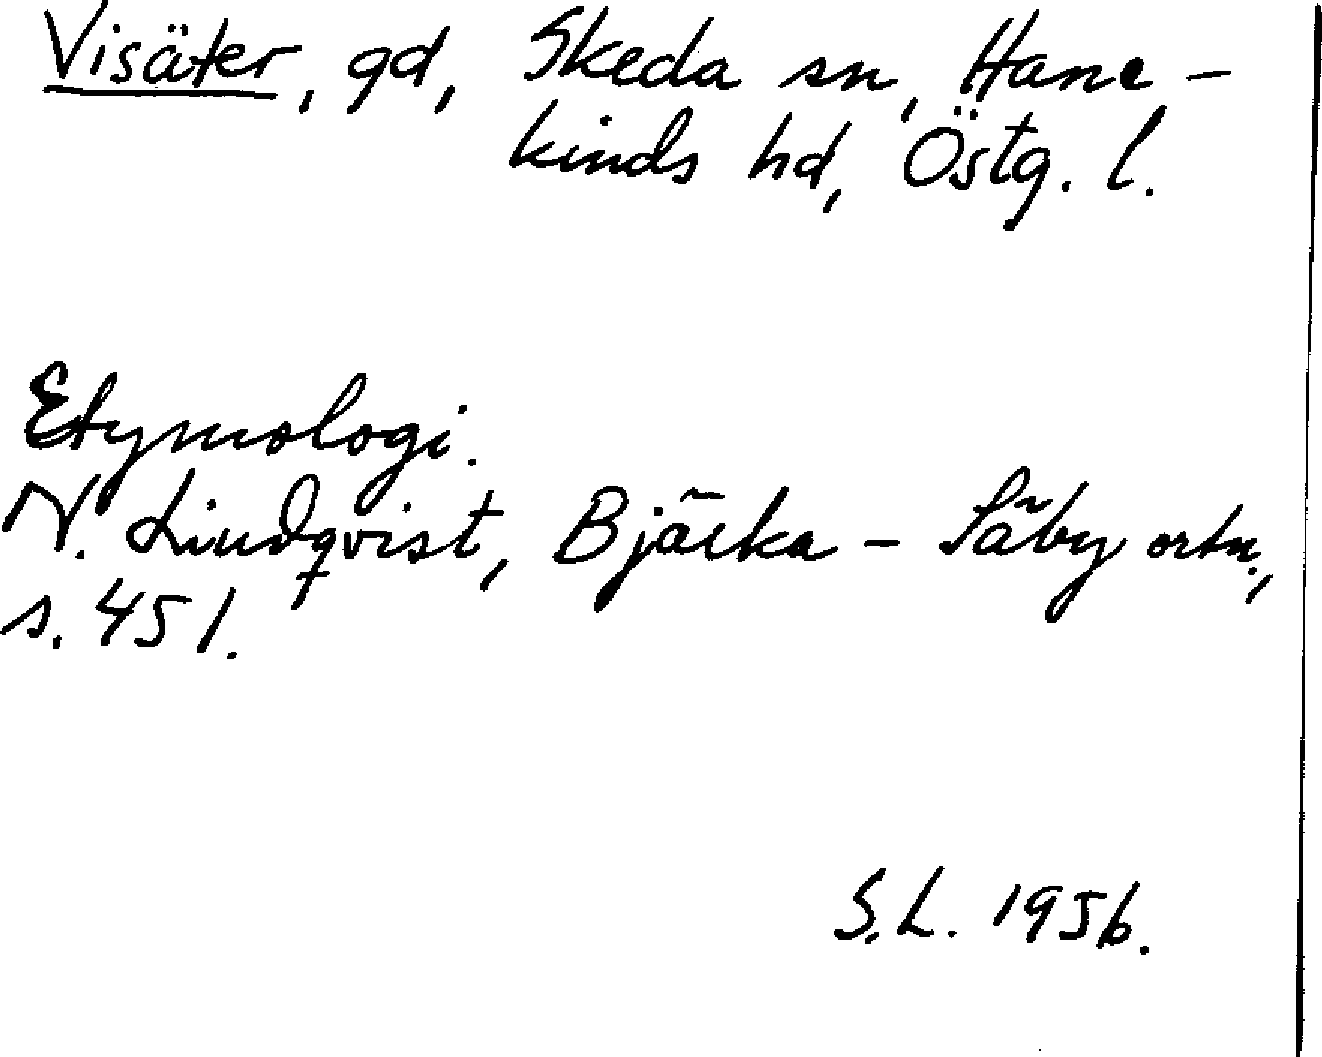 Visäter, gd, Skeda sn, Hane-
kinds hd, Östg. l.
Etymologi.
N. Lindqvist, Bjärka-Säby ortn.,
s. 451.
S.L. 1956.